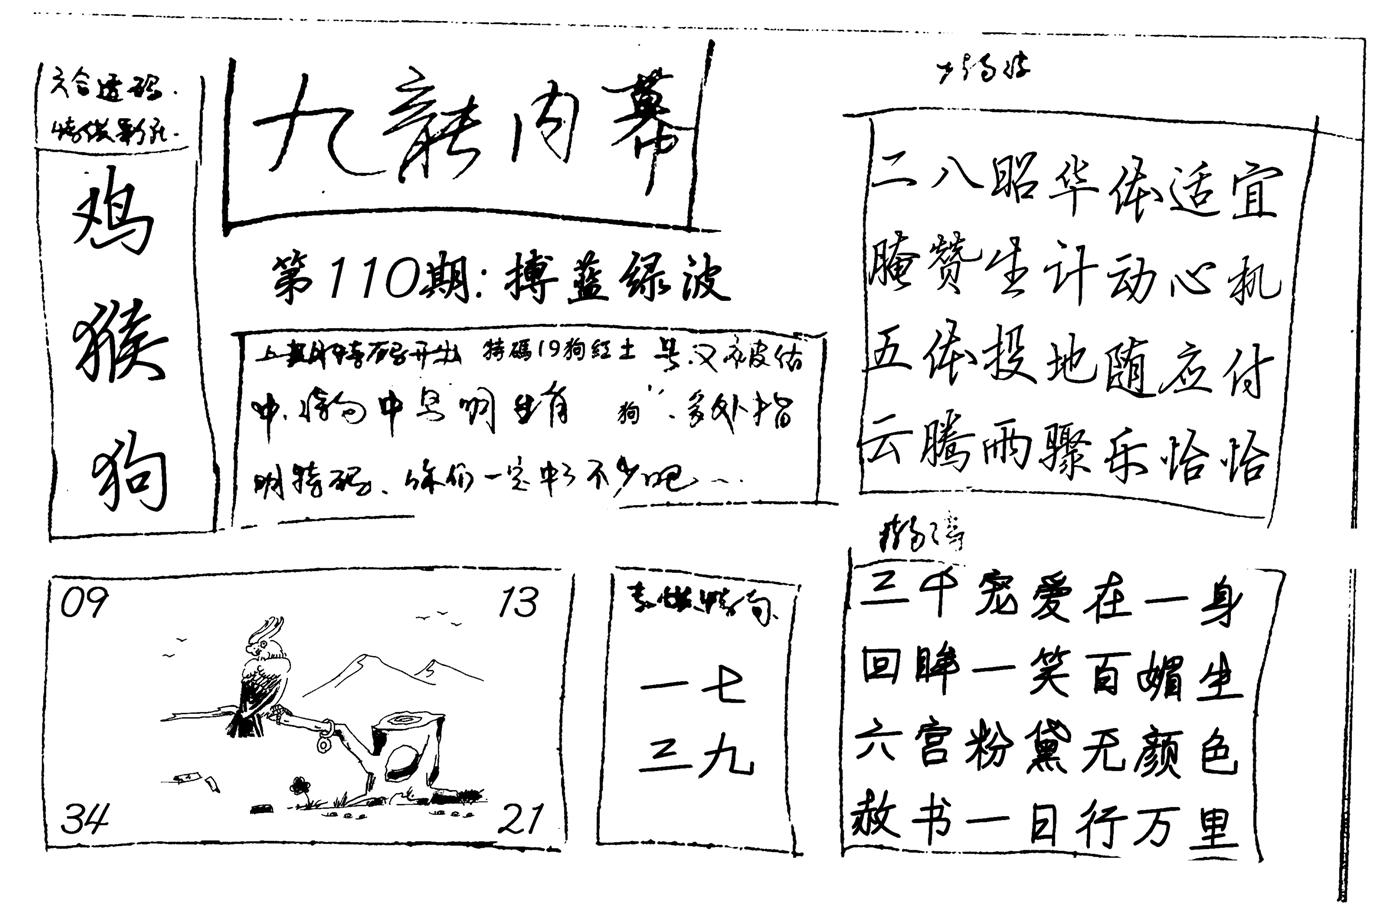 六合透码.
特供彩民.
鸡
猴
狗
九龍内幕
第110期:搏蓝绿波
上期特码开出 特碼19狗红土 号.又被估
中.特句中号明生有 狗".多处指
明特码.你们一定中了不少吧...
二八昭华体适宜
腌赞生计动心机
五体投地随应付
云腾雨骤乐恰恰
三千宠爱在一身
回眸一笑百媚生
六宫粉黛无颜色
赦书一日行万里
09
13
34
21
一七
三九